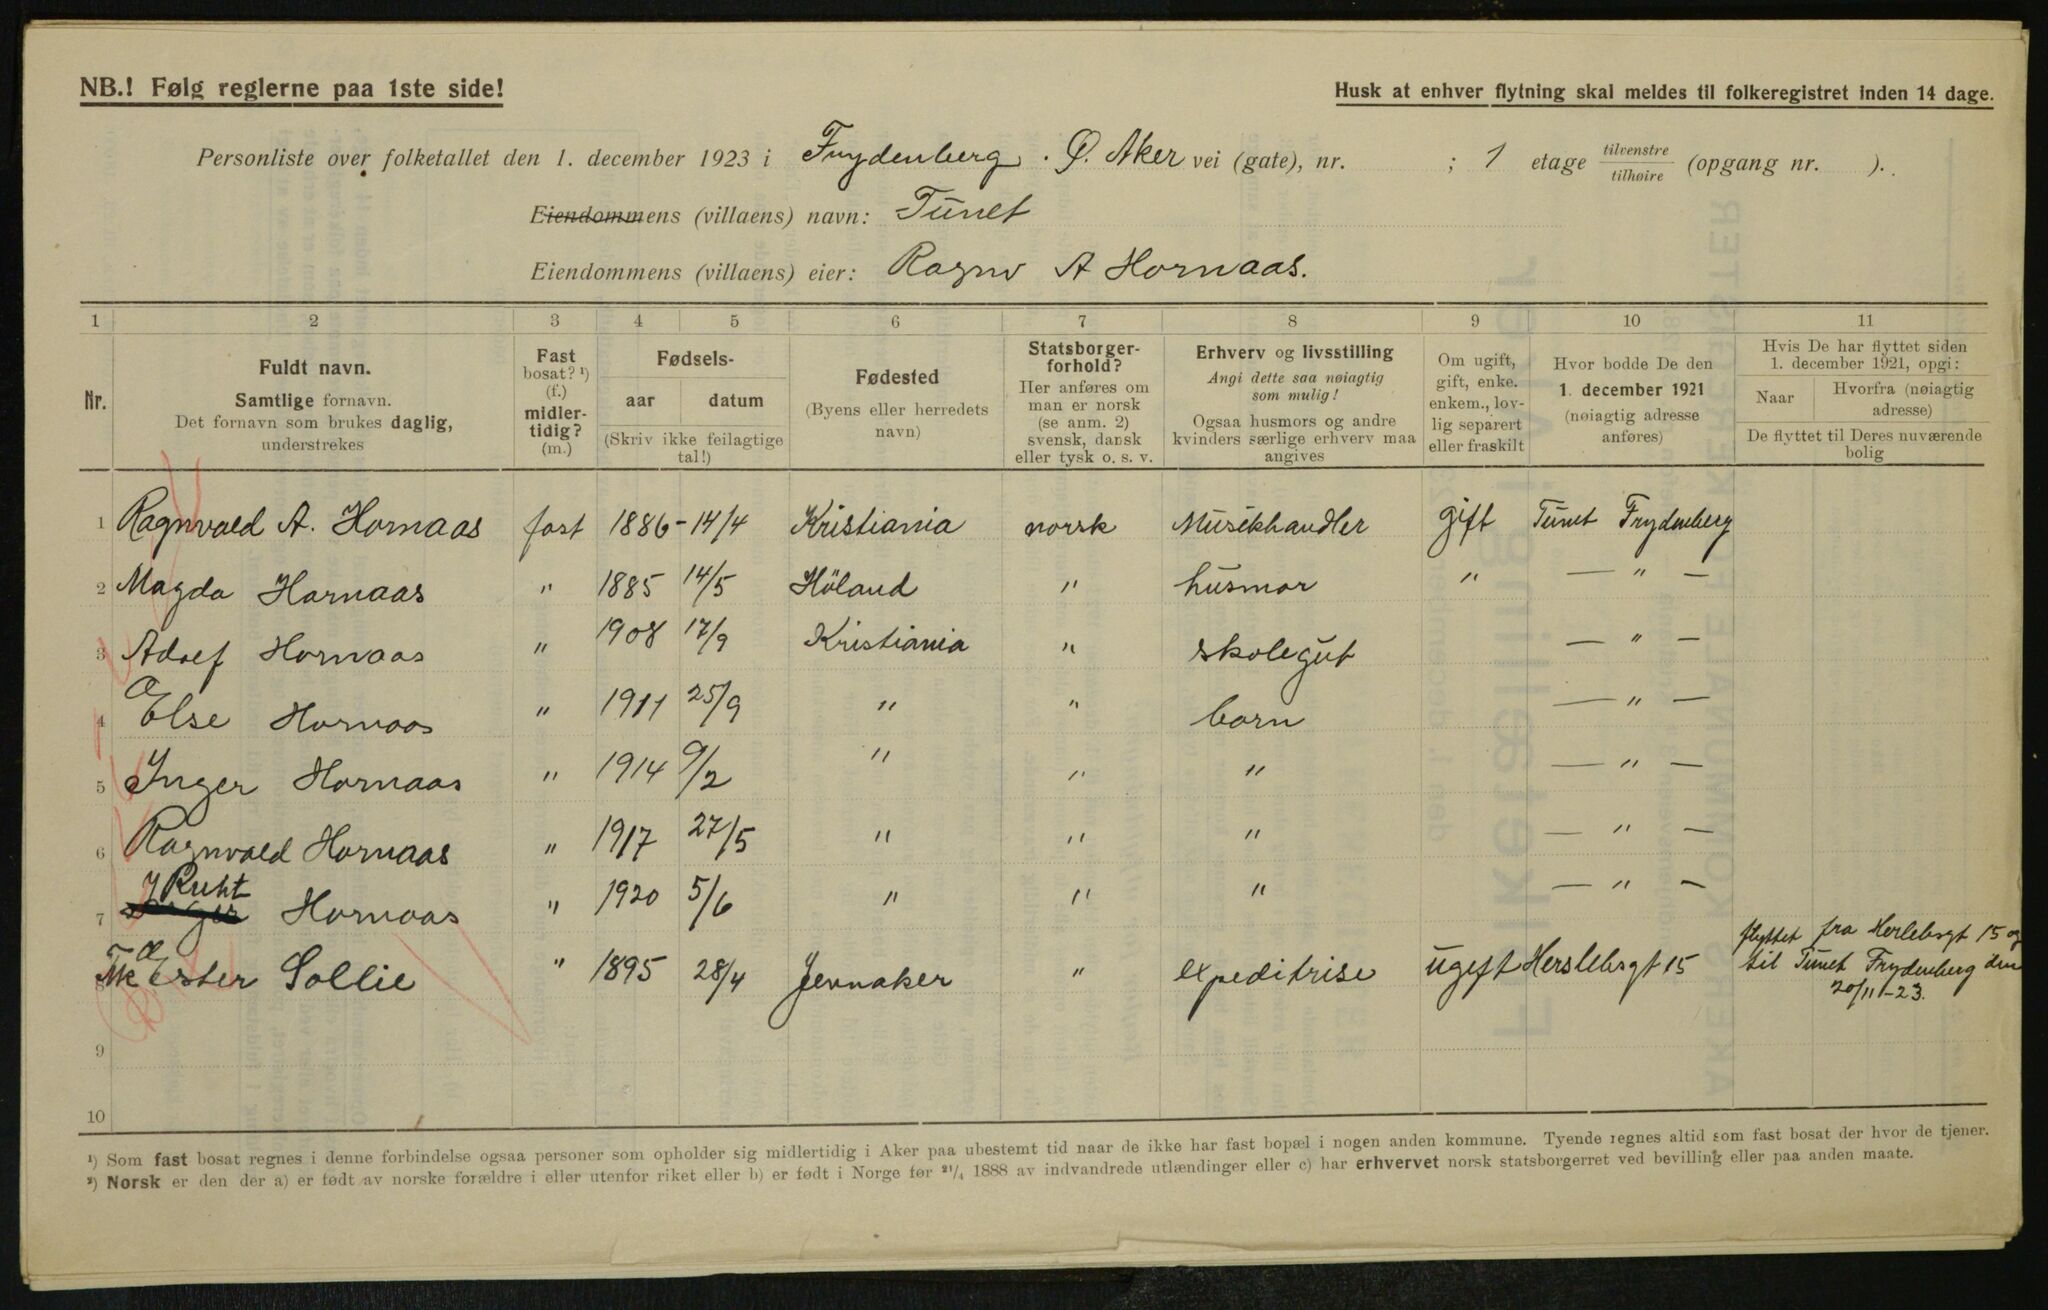 NB.! Følg reglerne paa 1ste side!
Husk at enhver flytning skal meldes til folkeregistret inden 14 dage.
Personliste over folketallet den 1. december 1923 i Frydenberg. Ø. Aker vei (gate), nr. ; 1 etage tilvenstre tilhøire (opgang nr. ).
Eiendommens (villaens) navn: Tunet
Eiendommens (villaens) eier: Ragnv A Hornaas.
1 2 3 4 5 6 7 8 9 10 11
Nr.
Fuldt navn.
Samtlige fornavn.
Det fornavn som brukes daglig,
understrekes
Fast
bosat? ¹)
(f.)
midler-
tidig?
(m.)
Fødsels-
aar datum
(Skriv ikke feilagtige
tal!)
Fødested
(Byens eller herredets
navn)
Statsborger-
forhold?
Her anføres om
man er norsk
(se anm. 2)
svensk, dansk
eller tysk o. s. v.
Erhverv og livsstilling
Angi dette saa nøiagtig
som mulig!
Ogsaa husmors og andre
kvinders særlige erhverv maa
angives
Om ugift,
gift, enke.
enkem., lov-
lig separert
eller fraskilt
Hvor bodde De den
1. december 1921
(nøiagtig adresse
anføres)
Hvis De har flyttet siden
1. december 1921, opgi:
Naar
Hvorfra (nøiagtig
adresse)
De flyttet til Deres nuværende
bolig
1 Ragnvald A. Hornaas fast 1886 - 14/4 Kristiania norsk Musikhandler gift Tunet Frydenberg
2 Magda Hornaas " 1885 14/5 Höland " husmor " — " —
3 Adolf Hornaas " 1908 17/9 Kristiania " skolegut — " —
4 Else Hornaas " 1911 25/9 " " barn — " —
5 Inger Hornaas " 1914 9/2 " " " — " —
6 Ragnvald Hornaas " 1917 27/5 " " " — " —
Ruht
7 Hornaas " 1920 5/6 " " " — " —
Ester Sollie " 1895 28/4 Jevnaker " expeditrise ugift Herslebsgt 15
flyttet fra Herlebsgt 15 og
til Tunet Frydenberg den
20/11-23.
9
10
¹) Som fast bosat regnes i denne forbindelse ogsaa personer som opholder sig midlertidig i Aker paa ubestemt tid naar de ikke har fast bopæl i nogen anden kommune. Tyende regnes altid som fast bosat der hvor de tjener.
²) Norsk er den der a) er født av norske forældre i eller utenfor riket eller b) er født i Norge før ²¹/₄ 1888 av indvandrede utlændinger eller c) har erhvervet norsk statsborgerret ved bevilling eller paa anden maate.